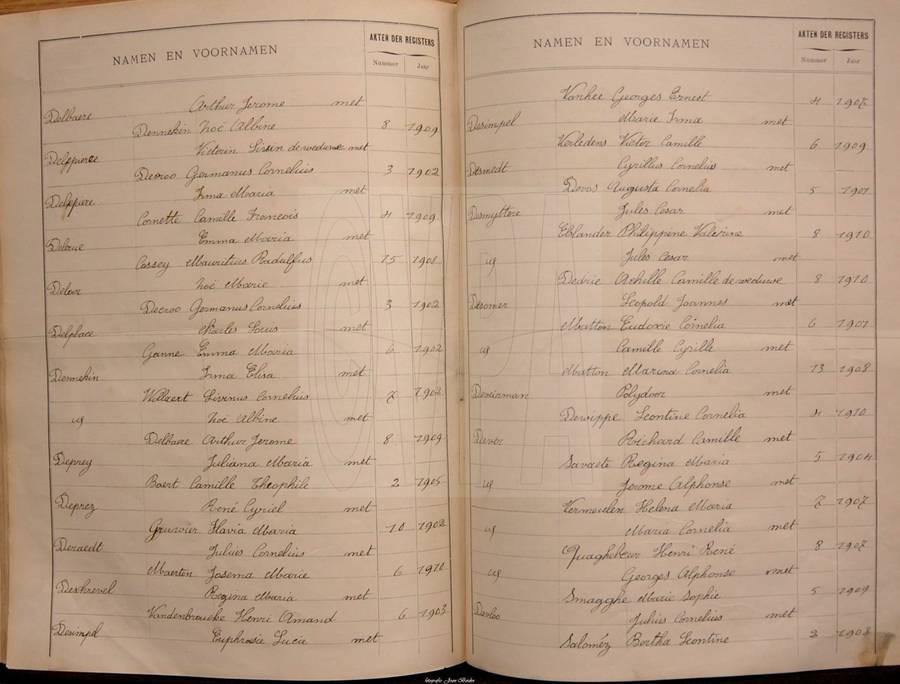 NAMEN EN VOORNAMEN
AKTEN DER REGISTERS
Nummer Jaar
Delbaere Arthur Jerome met
Dennekin Noë Albine 8 1909
Victorin met
Decroo Germanus Cornelius 3 1902
Irma Maria met
Cornette Camille Francois 4 1909
Delrue Emma Maria met
Cossey Mauritius Radulfus 15 1901
Noë Marie met
Decroo Germanus Cornelius 3 1902
Delplace Charles met
Ganne Emma Maria 6 1902
Dennekin Irma Elisa met
Willaert Livinus Cornelius 7 1902
Noë Albine met
Delbaere Arthur Jerome 8 1909
Deprey Juliana Maria met
Baert Camille Theophile 2 1905
Deprez René Cyriel met
Flavia Maria 10 1902
Deraedt Julius Cornelius met
Maerten Josema Marie 6 1910
Regina Maria met
Vandenbroucke Henri Amand 6 1903
Euphrosie Lucie met
NAMEN EN VOORNAMEN
AKTEN DER REGISTERS
Nummer Jaar
Vanhee Georges Ernest 4 1907
Desimpel Marie Irma met
Verledens Victor Camille 6 1909
Desmedt Cyrillus Cornelius met
Devos Augusta Cornelia 5 1901
Desmyttere Jules Cesar met
Eblander Philippene Valerine 8 1910
Jules Cesar met
Achille Camille de weduwe 8 1910
Desomer Leopold Joannes met
Matton Eudoxie Cornelia 6 1901
Camille Cyrille met
Matton Marina Cornelia 13 1908
Polydoor met
Dewippe Leontine Cornelia 4 1910
Dever Richard Camille met
Savaete Regina Maria 5 1904
Jerome Alphonse met
Vermeulen Helena Maria 7 1907
Maria Cornelia met
Quaghebeur Henri René 8 1907
Georges Alphonse met
Smagghe Marie Sophie 5 1909
Julius Cornelius met
Saloméz Bertha Leontine 3 1908